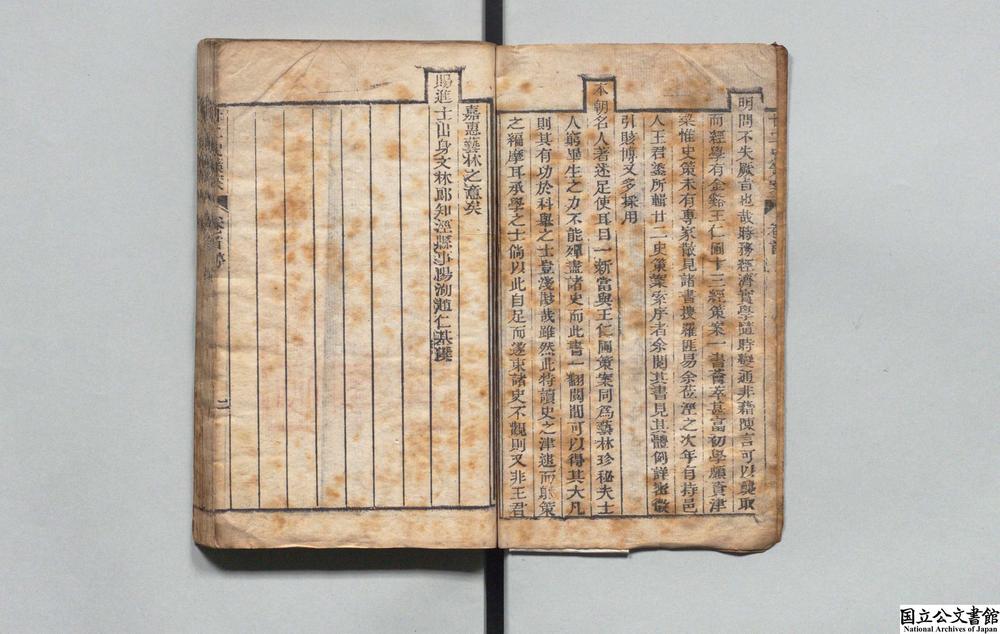 明問不失厥旨也哉時務經濟實學隨時變通非藉陳言可以襲取
而經學有金谿王仁圃十三經策案一書薈萃甚富初學願資津
梁惟史策未有專家散見諸書搜羅匪易余莅涇之次年有持邑
人王君鎏所輯廿二史策案索序者余閱其書見其體例詳密徵
引賅博又多採用
本朝名人著述足使耳目一新當與王仁圃策案同為藝林珍秘夫士
人窮畢生之力不能殫盡諸史而此書一翻閱間可以得其大凡
則其有功於科舉之士豈淺尠哉雖然此特讀史之津逮而射策
之編摩耳承學之士倘以此自足而遂束諸史不觀則又非王君
嘉惠藝林之意矣
賜進士出身文林郎知涇縣事陽洵趙仁基撰
二
国立公文書館
National Archives of Japan